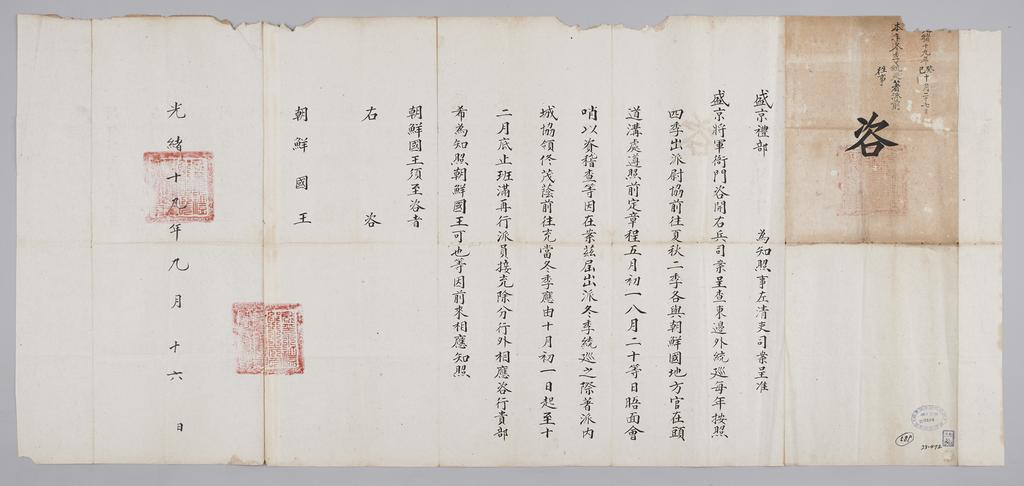 咨
盛京禮部 為知照事左清吏司案呈准
盛京將軍衙門咨開右兵司案呈查東邊外統巡每年按照
四季出派尉協前往夏秋二季各與朝鮮國地方官在頭
道溝處遵照前定章程五月初一八月二十等日晤面會
哨以資稽查等因在案茲屆出派冬季統巡之際著派內
城協領佟茂蔭前往充當冬季應由十月初一日起至十
二月底止班滿再行派員接充除分行外相應咨行貴部
希為知照朝鮮國王可也等因前來相應知照
朝鮮國王須至咨者
右咨
朝鮮國王
光緒十九年九月十六日